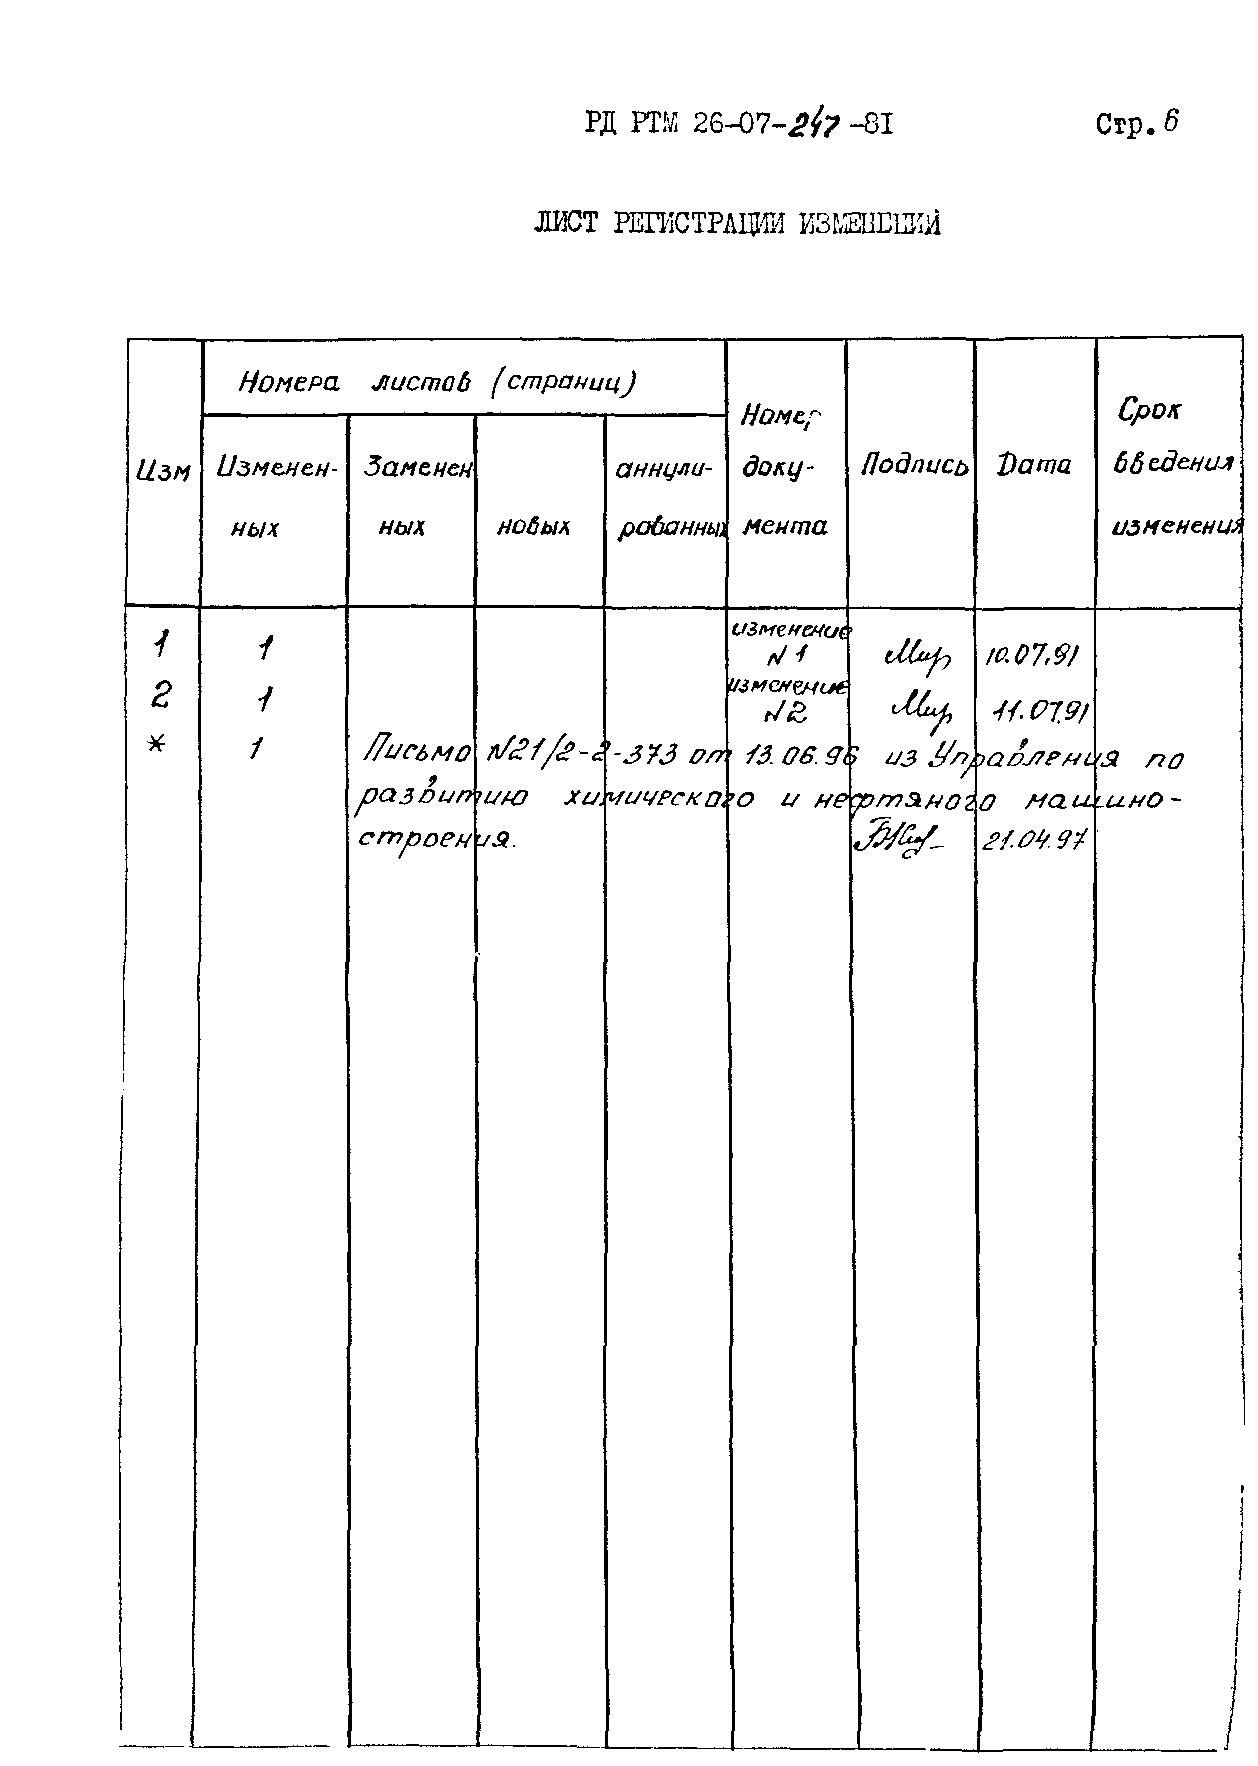 РД РТМ 26-07-247-81 Стр. 6
ЛИСТ РЕГИСТРАЦИИ ИЗМЕНЕНИЙ
Изм
Номера листов (страниц)
Изменен-
ных
Заменен
ных
новых
аннули-
рованных
Номер
доку-
мента
Подпись
Дата
Срок
введения
изменения
1 1 изменение
№1 10.07.91
2 1 изменение
№2 11.07.91
* 1 Письмо №21/2-2-373 от 13.06.96 из Управления по
развитию химического и нефтяного машино-
строения. 21.04.97